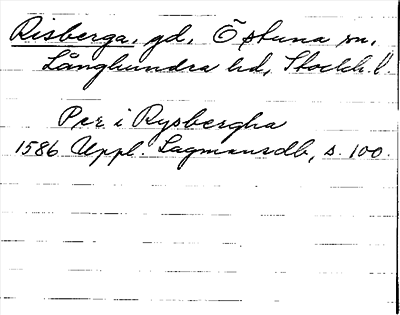 Risberga, gd, Östuna sn,
Långhundra hd, Stockh. l.
Per i Rysbergha
1586 Uppl. Lagmansdb, s. 100.